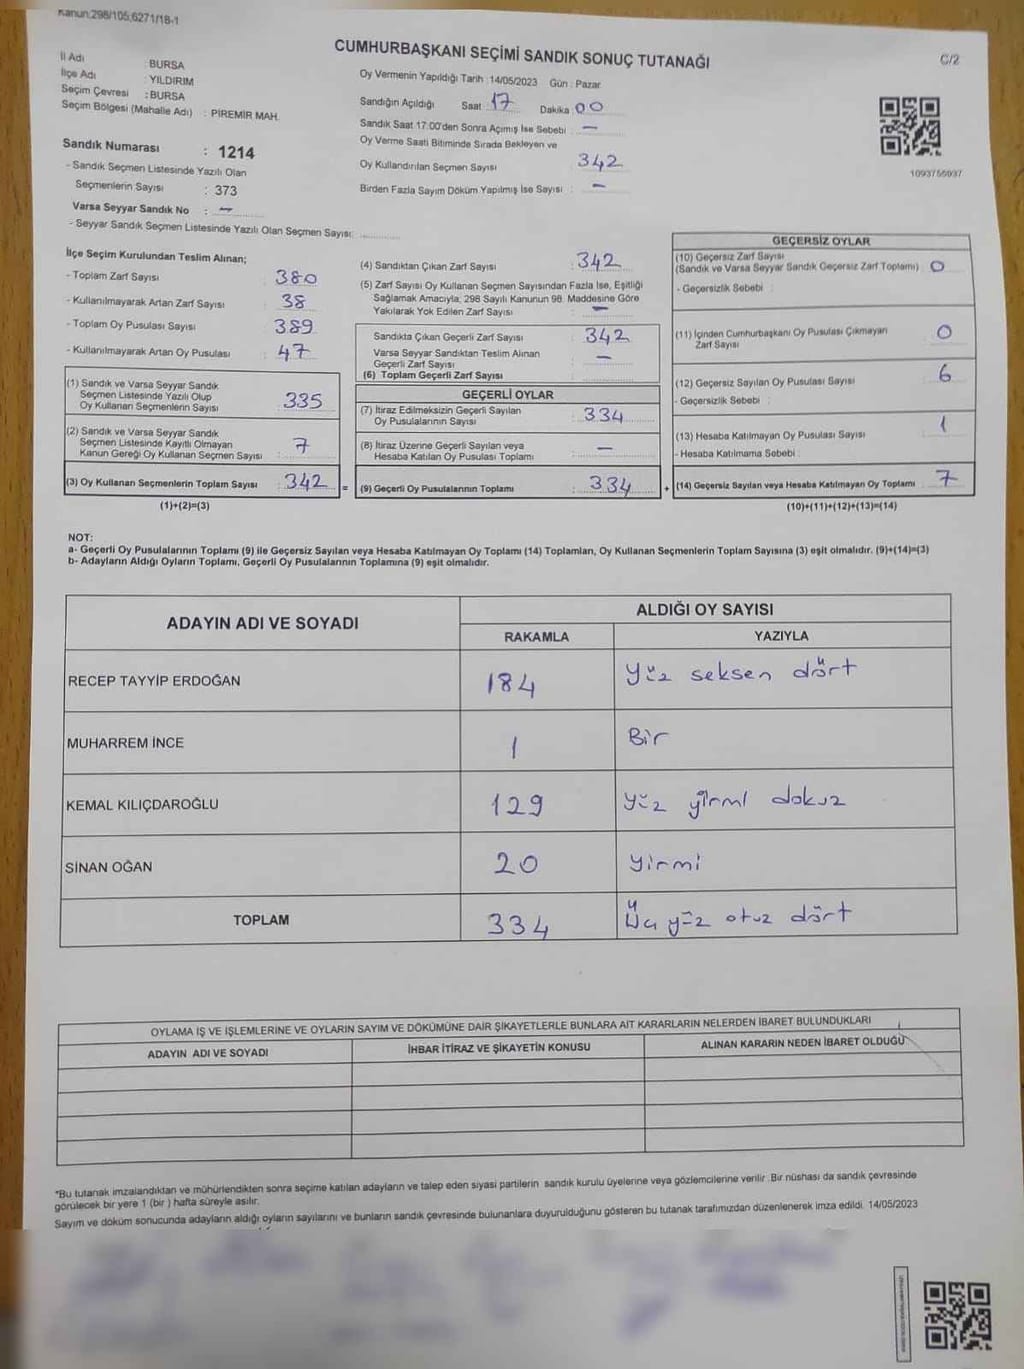 Kanun:298/105;6271/18-1
CUMHURBAŞKANI SEÇİMİ SANDIK SONUÇ TUTANAĞI
C/2
İl Adı : BURSA
İlçe Adı : YILDIRIM
Seçim Çevresi : BURSA
Seçim Bölgesi (Mahalle Adı) : PİREMİR MAH.
Sandık Numarası : 1214
- Sandık Seçmen Listesinde Yazılı Olan
Seçmenlerin Sayısı : 373
Varsa Seyyar Sandık No : —
- Seyyar Sandık Seçmen Listesinde Yazılı Olan Seçmen Sayısı:
Oy Vermenin Yapıldığı Tarih :14/05/2023 Gün : Pazar
Sandığın Açıldığı Saat : 17 Dakika : 00
Sandık Saat 17:00'den Sonra Açımış İse Sebebi : —
Oy Verme Saati Bitiminde Sırada Bekleyen ve
Oy Kullandırılan Seçmen Sayısı : 342
Birden Fazla Sayım Döküm Yapılmış İse Sayısı : —
1093756937
İlçe Seçim Kurulundan Teslim Alınan;
- Toplam Zarf Sayısı : 380
- Kullanılmayarak Artan Zarf Sayısı : 38
- Toplam Oy Pusulası Sayısı : 389
- Kullanılmayarak Artan Oy Pusulası : 47
(1) Sandık ve Varsa Seyyar Sandık
Seçmen Listesinde Yazılı Olup
Oy Kullanan Seçmenlerin Sayısı : 335
(2) Sandık ve Varsa Seyyar Sandık
Seçmen Listesinde Kayıtlı Olmayan
Kanun Gereği Oy Kullanan Seçmen Sayısı : 7
(3) Oy Kullanan Seçmenlerin Toplam Sayısı : 342
(1)+(2)=(3)
(4) Sandıktan Çıkan Zarf Sayısı : 342
(5) Zarf Sayısı Oy Kullanan Seçmen Sayısından Fazla İse, Eşitliği
Sağlamak Amacıyla, 298 Sayılı Kanunun 98. Maddesine Göre
Yakılarak Yok Edilen Zarf Sayısı : —
Sandıkta Çıkan Geçerli Zarf Sayısı : 342
Varsa Seyyar Sandıktan Teslim Alınan
Geçerli Zarf Sayısı : —
(6) Toplam Geçerli Zarf Sayısı :
GEÇERLİ OYLAR
(7) İtiraz Edilmeksizin Geçerli Sayılan
Oy Pusulalarının Sayısı : 334
(8) İtiraz Üzerine Geçerli Sayılan veya
Hesaba Katılan Oy Pusulası Toplamı : —
= (9) Geçerli Oy Pusulalarının Toplamı : 334
GEÇERSİZ OYLAR
(10) Geçersiz Zarf Sayısı
(Sandık ve Varsa Seyyar Sandık Geçersiz Zarf Toplamı) : 0
- Geçersizlik Sebebi :
(11) İçinden Cumhurbaşkanı Oy Pusulası Çıkmayan
Zarf Sayısı : 0
(12) Geçersiz Sayılan Oy Pusulası Sayısı : 6
- Geçersizlik Sebebi :
(13) Hesaba Katılmayan Oy Pusulası Sayısı : 1
- Hesaba Katılmama Sebebi :
+ (14) Geçersiz Sayılan veya Hesaba Katılmayan Oy Toplamı : 7
(10)+(11)+(12)+(13)=(14)
NOT:
a- Geçerli Oy Pusulalarının Toplamı (9) ile Geçersiz Sayılan veya Hesaba Katılmayan Oy Toplamı (14) Toplamları, Oy Kullanan Seçmenlerin Toplam Sayısına (3) eşit olmalıdır. (9)+(14)=(3)
b- Adayların Aldığı Oyların Toplamı, Geçerli Oy Pusulalarının Toplamına (9) eşit olmalıdır.
ADAYIN ADI VE SOYADI
ALDIĞI OY SAYISI
RAKAMLA YAZIYLA
RECEP TAYYİP ERDOĞAN 184 Yüz seksen dört
MUHARREM İNCE 1 Bir
KEMAL KILIÇDAROĞLU 129 Yüz yirmi dokuz
SİNAN OĞAN 20 Yirmi
TOPLAM 334 Üç yüz otuz dört
OYLAMA İŞ VE İŞLEMLERİNE VE OYLARIN SAYIM VE DÖKÜMÜNE DAİR ŞİKAYETLERLE BUNLARA AİT KARARLARIN NELERDEN İBARET BULUNDUKLARI
ADAYIN ADI VE SOYADI İHBAR İTİRAZ VE ŞİKAYETİN KONUSU ALINAN KARARIN NEDEN İBARET OLDUĞU
*Bu tutanak imzalandıktan ve mühürlendikten sonra seçime katılan adayların ve talep eden siyasi partilerin sandık kurulu üyelerine veya gözlemcilerine verilir. Bir nüshası da sandık çevresinde
görülecek bir yere 1 (bir ) hafta süreyle asılır.
Sayım ve döküm sonucunda adayların aldığı oyların sayılarını ve bunların sandık çevresinde bulunanlara duyurulduğunu gösteren bu tutanak tarafımızdan düzenlenerek imza edildi. 14/05/2023